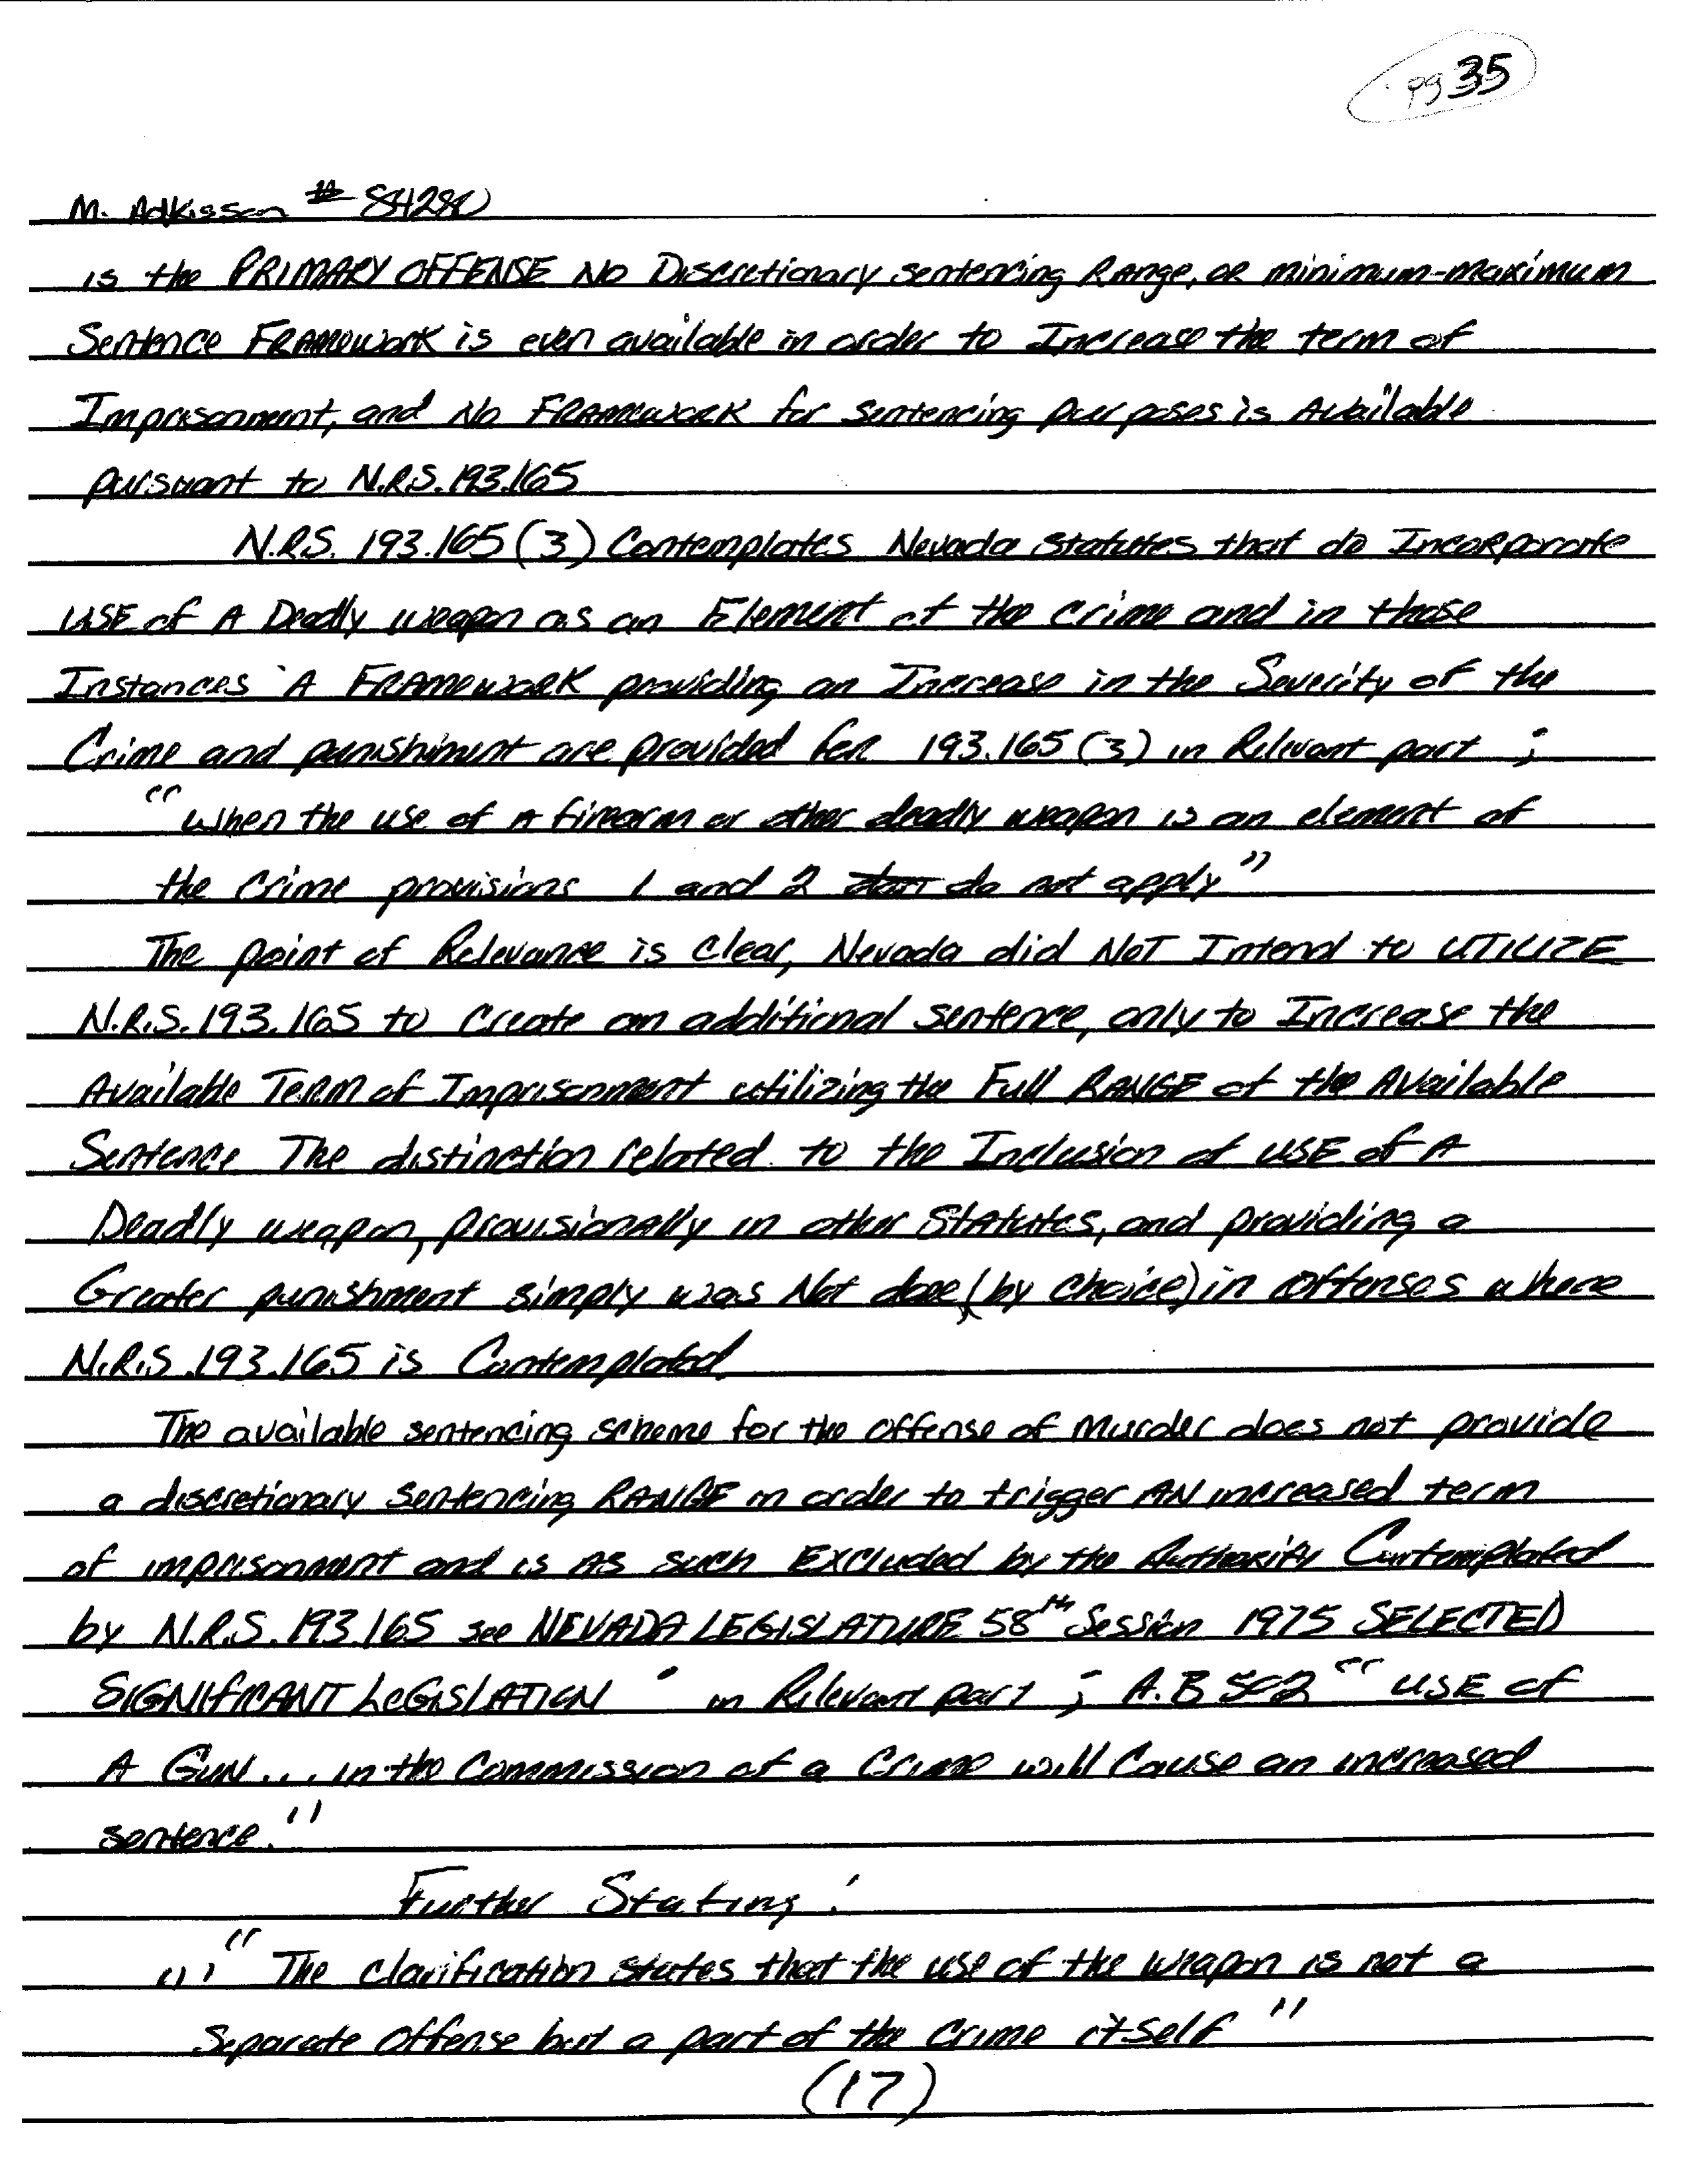 pg 35
M. Adkisson # 84280
is the PRIMARY OFFENSE NO Discretionary sentencing Range, or minimum-maximum
Sentence FRAMEWORK is even available in order to Increase the term of
Imprisonment, and No FRAMEWORK for sentencing purposes is Available
pursuant to N.R.S. 193.165
N.R.S. 193.165 (3) Contemplates Nevada statutes that do Incorporate
USE of A Deadly weapon as an Element of the crime and in those
Instances A FRAMEWORK providing an Increase in the Severity of the
Crime and punishment are provided for 193.165 (3) in Relevant part ;
"When the use of A firearm or other deadly weapon is an element of
the crime provisions 1 and 2 do not apply"
The point of Relevance is clear, Nevada did NOT Intend to UTILIZE
N.R.S. 193.165 to Create an additional sentence, only to Increase the
Available TERM of Imprisonment utilizing the Full RANGE of the Available
Sentence The distinction related to the Inclusion of USE of A
Deadly weapon, provisionally in other STATUTES, and providing a
Greater punishment simply was Not done (by choice) in offenses where
N.R.S. 193.165 is Contemplated.
The available sentencing scheme for the offense of Murder does not provide
a discretionary sentencing RANGE in order to trigger AN increased term
of imprisonment and is AS such EXCLUDED by the Authority Contemplated
by N.R.S. 193.165 see NEVADA LEGISLATURE 58th Session 1975 SELECTED
SIGNIFICANT LEGISLATION in Relevant part ; A.B 502 "USE of
A GUN... in the Commission of a Crime will Cause an increased
sentence."
Further Stating :
"The clarification states that the use of the weapon is not a
Separate offense but a part of the crime itself"
(17)